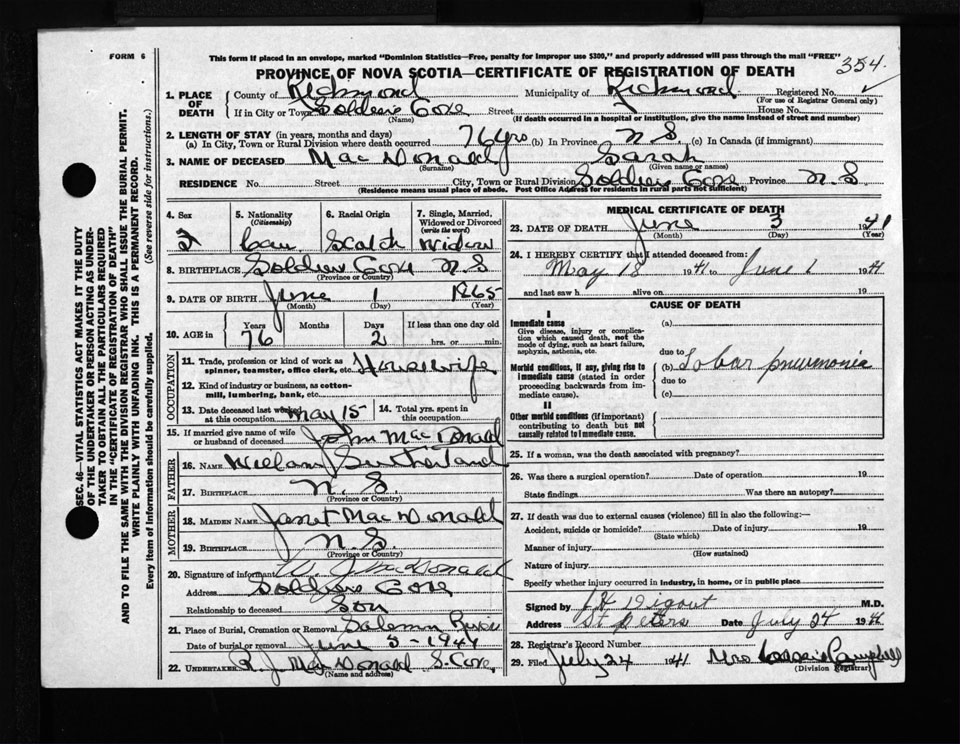 FORM 6
This form if placed in an envelope, marked "Dominion Statistics—Free, penalty for improper use $300," and properly addressed will pass through the mail "FREE"
354
PROVINCE OF NOVA SCOTIA—CERTIFICATE OF REGISTRATION OF DEATH
1. PLACE OF DEATH County of Richmond Municipality of Richmond Registered No.
(For use of Registrar General only)
If in City or Town Soldiers Cove Street House No.
(Name) (If death occurred in a hospital or institution, give the name instead of street and number)
2. LENGTH OF STAY (in years, months and days)
(a) In City, Town or Rural Division where death occurred 76 yrs (b) In Province N S. (c) In Canada (if immigrant)
3. NAME OF DECEASED Mac Donald Sarah
(Surname) (Given name or names)
RESIDENCE No. Street City, Town or Rural Division Soldiers Cove Province N. S.
(Residence means usual place of abode. Post Office Address for residents in rural parts not sufficient)
4. Sex 5. Nationality (Citizenship) 6. Racial Origin 7. Single, Married, Widowed or Divorced (write the word)
Can Scotch widow
8. BIRTHPLACE Soldiers Cove N S
(Province or Country)
9. DATE OF BIRTH June 1 1865
(Month) (Day) (Year)
10. AGE in Years Months Days If less than one day old
76 2 hrs. or min.
OCCUPATION
11. Trade, profession or kind of work as spinner, teamster, office clerk, etc. Housewife
12. Kind of industry or business, as cotton-mill, lumbering, bank, etc.
13. Date deceased last worked at this occupation May 15 14. Total yrs. spent in this occupation
15. If married give name of wife or husband of deceased John MacDonald
FATHER
16. NAME William Sutherland
17. BIRTHPLACE N. S.
(Province or Country)
MOTHER
18. MAIDEN NAME Janet MacDonald
19. BIRTHPLACE N. S.
(Province or Country)
20. Signature of informant W. J. MacDonald
Address Soldiers Cove
Relationship to deceased Son
21. Place of Burial, Cremation or Removal Salmon River
Date of burial or removal June 5 - 1941
22. UNDERTAKER R. J. MacDonald S. Cove
(Name and address)
MEDICAL CERTIFICATE OF DEATH
23. DATE OF DEATH June 3 1941
(Month) (Day) (Year)
24. I HEREBY CERTIFY that I attended deceased from:
May 18 1941 to June 1941
and last saw h alive on 19
CAUSE OF DEATH
I
Immediate cause (a)
Give disease, injury or complication which caused death, not the mode of dying, such as heart failure, asphyxia, asthenia, etc.
due to
Morbid conditions, if any, giving rise to immediate cause (stated in order proceeding backwards from immediate cause).
(b) Lobar pneumonia
due to
(c)
II
Other morbid conditions (if important) contributing to death but not causally related to immediate cause.
25. If a woman, was the death associated with pregnancy?
26. Was there a surgical operation? Date of operation 19
State findings Was there an autopsy?
27. If death was due to external causes (violence) fill in also the following:—
Accident, suicide or homicide? Date of injury 19
(State which)
Manner of injury
(How sustained)
Nature of injury
Specify whether injury occurred in industry, in home, or in public place
Signed by Digout M.D.
Address St Peters Date July 24 1941
28. Registrar's Record Number
29. Filed July 24 1941 Mrs Campbell
(Division Registrar)
SEC. 46—VITAL STATISTICS ACT MAKES IT THE DUTY
OF THE UNDERTAKER OR PERSON ACTING AS UNDER-
TAKER TO OBTAIN ALL THE PARTICULARS REQUIRED
IN THE "CERTIFICATE OF REGISTRATION OF DEATH"
AND TO FILE THE SAME WITH THE DIVISION REGISTRAR WHO SHALL ISSUE THE BURIAL PERMIT.
WRITE PLAINLY WITH UNFADING INK. THIS IS A PERMANENT RECORD.
Every item of information should be carefully supplied. (See reverse side for instructions.)